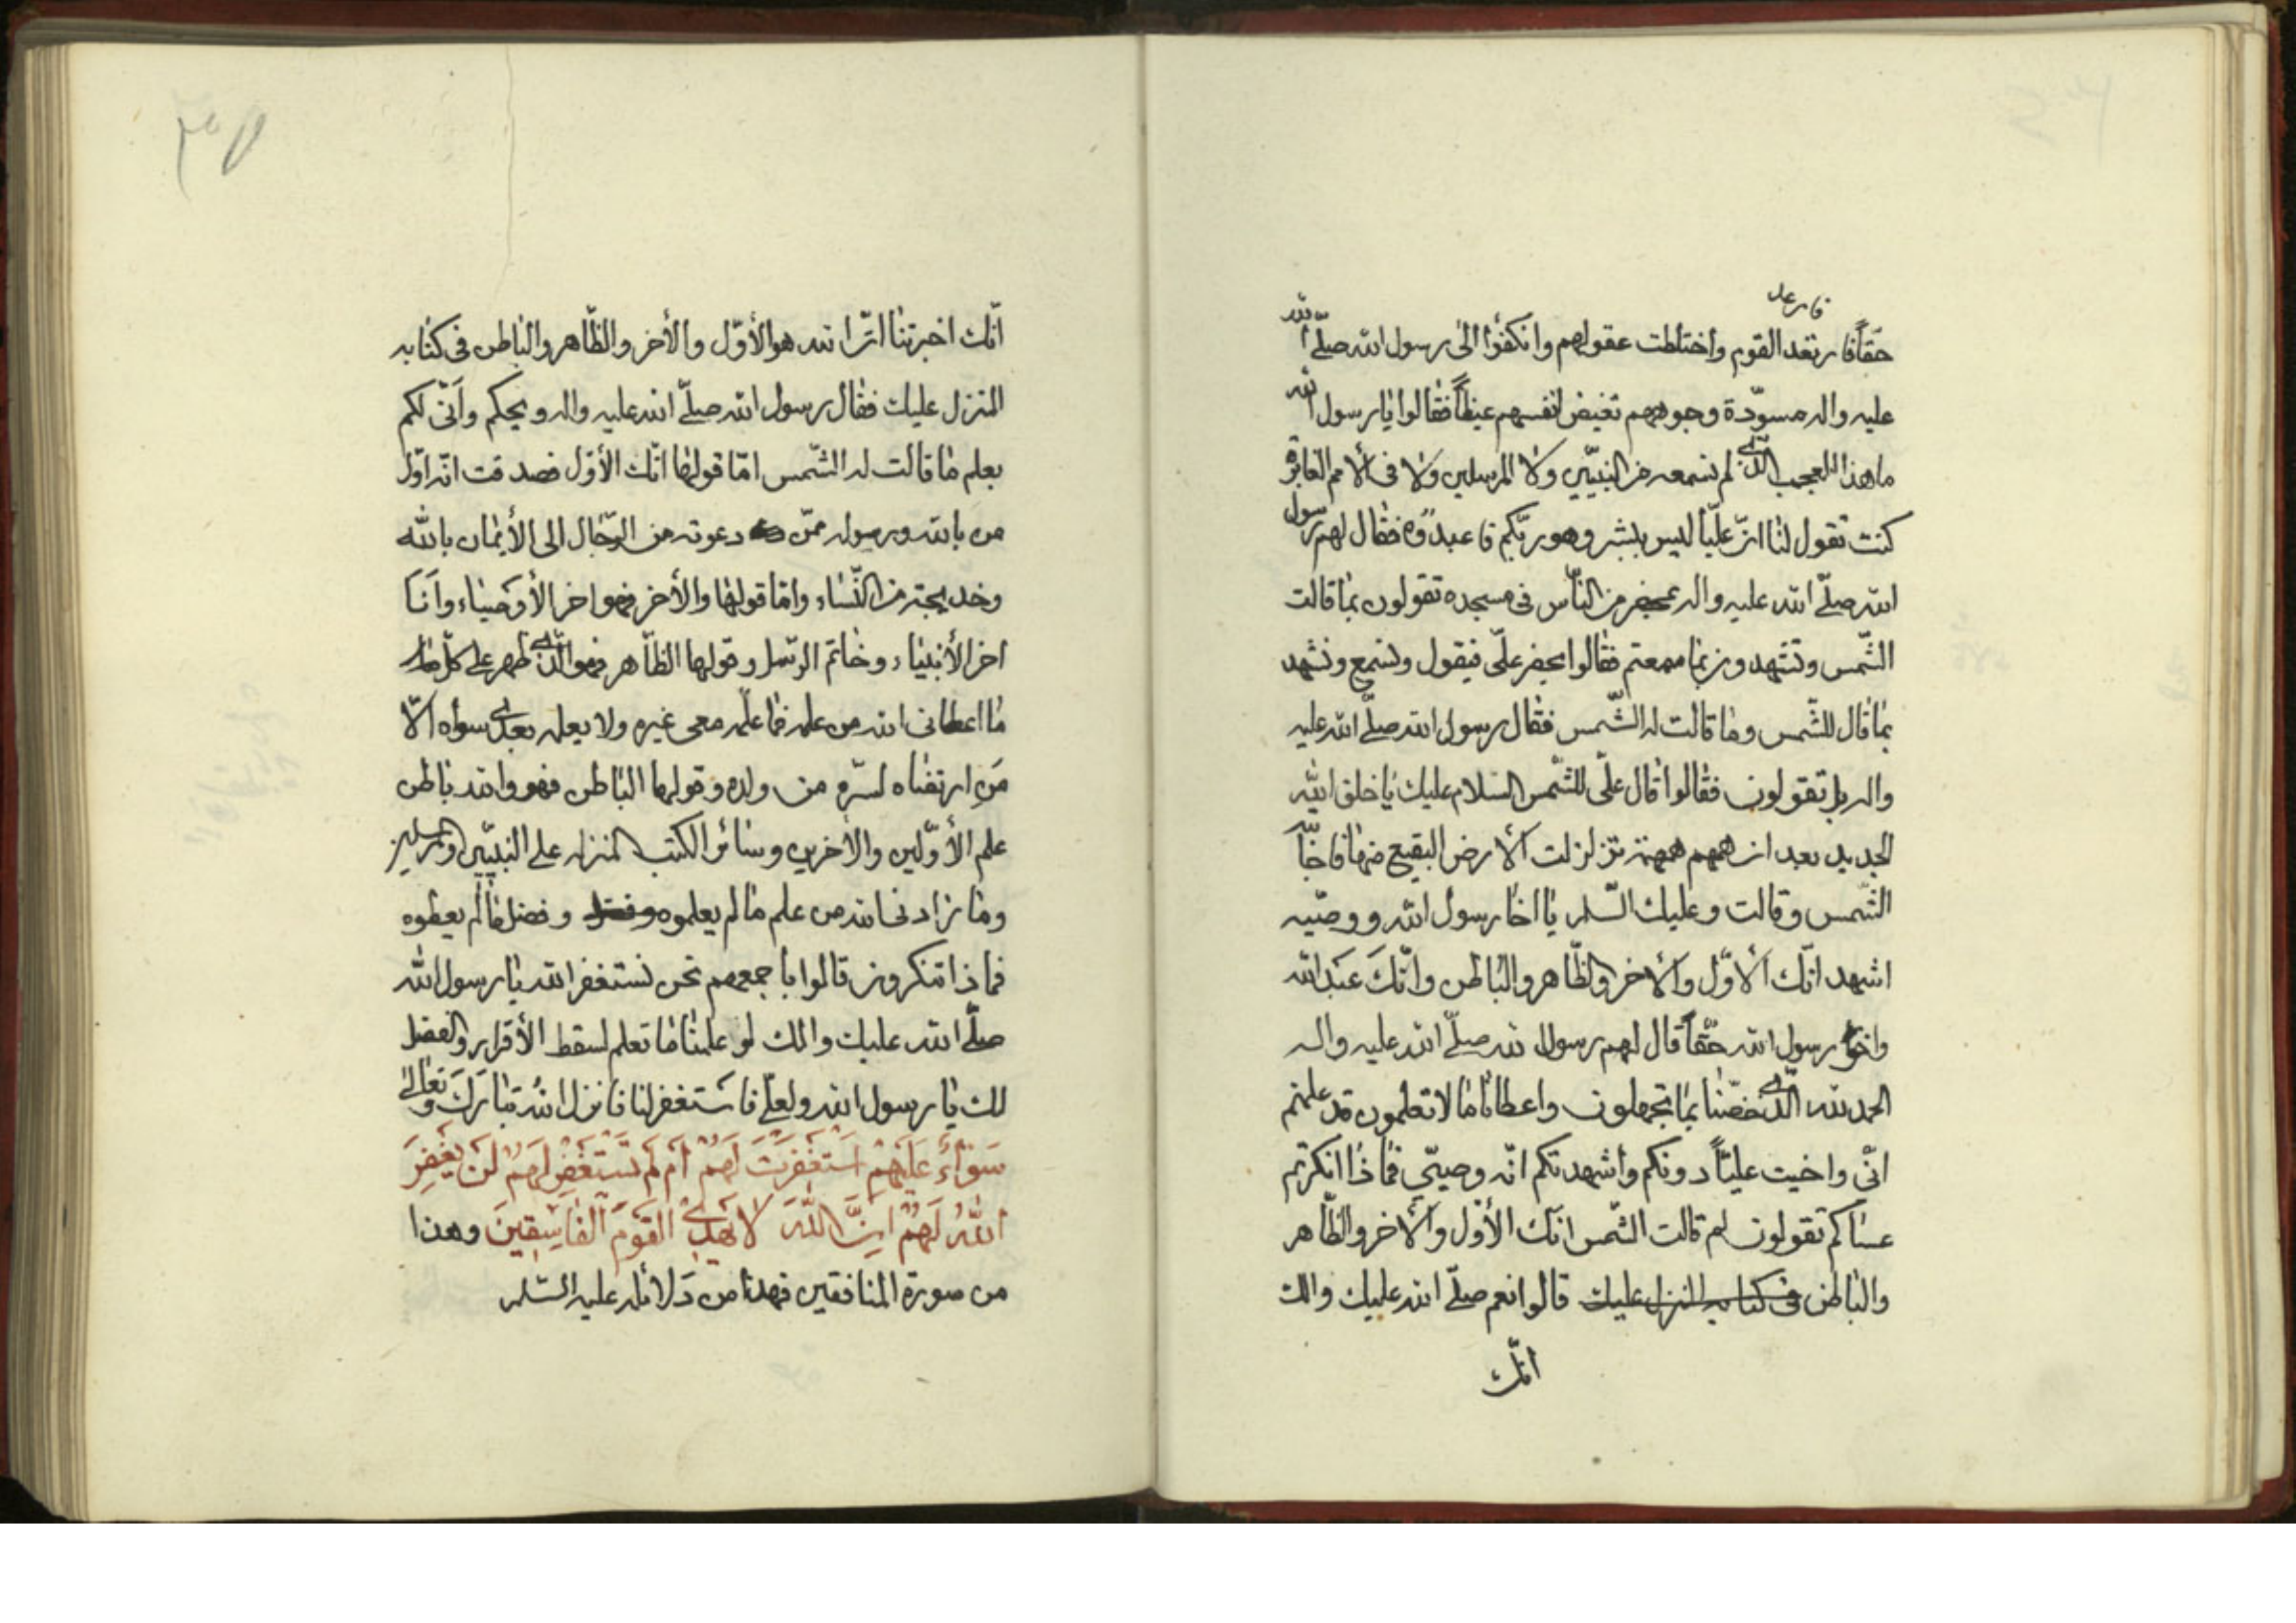 فارعد
حقاً فارتعد القوم واختلطت عقولهم وانكفؤا الى رسول الله صلّى الله
عليه واله مسوّدة وجوههم تغيض انفسهم غيظاً فقالوا يا رسول الله
ما هذا العجب الّذي لم نسمعه من النبيّين ولا المرسلين ولا فى الأمم الغابرة
كنت تقول لنا انّ عليّاً ليس بشر وهو ربّكم فاعبدوه فقال لهم رسول
الله صلّى الله عليه واله بمحضر من النّاس فى مسجده تقولون بما قالت
الشّمس وتشهدون بما سمعتم فقالوا يحضر علىّ فيقول ونسمع ونشهد
بما قال للشّمس وما قالت له الشّمس فقال رسول الله صلّى الله عليه
واله بل تقولون فقالوا قال علىّ للشّمس السّلام عليك يا خلق الله
الجديد بعد ان همهم همهمة تزلزلت الأرض البقيع منها فاجابة
الشّمس وقالت وعليك السّلم يا اخا رسول الله ووصيّه
اشهد انّك الأوّل والأخر والظّاهر والباطن وانّكَ عَبدالله
واخو رسول الله حقّاً قال لهم رسول الله صلّى الله عليه واله
الحمد لله الّذي خصّنا بما تجهلون واعطانا ما لا تعلمون قد علمتم
انّى واخيت عليّاً دونكم واشهدتكم انّه وصيّي فماذا انكرتم
عساكم تقولون لم قالت الشّمس انّك الأوّل والأخر والظّاهر
والباطن فى كتابه المنزل عليك قالوا نعم صلّى الله عليك والك
انّك
٣٥
انّك اخبرتنا انّ الله هو الأوّل والأخر والظّاهر والباطن فى كتابه
المنزل عليك فقال رسول الله صلّى الله عليه واله ويحكم وَأنّى لكم
بعلم ما قالت له الشّمس امّا قولها انّك الأوّل فصدقت انّه اوّل
من بالله ورسوله ممّن دعوته من الرّجال الى الأيمان بالله
وخديجة من النّساء وامّا قولها والأخر فهو اخر الأوصياء وَأنا
اخر الأنبياء وخاتم الرّسل وقولها الظّاهر فهو الّذي ظهر على كلّ ما
ما اعطانى الله من علمه فما علمه معى غيره ولا يعلمه بعدى سواه الّا
مَن ارتضاه لسرّه من ولده وقولها الباطن فهو والله باطن
علم الأوّلين والأخرين وسائر الكتب المنزله على النبيّين والمرسلين
وما زادنى الله من علم ما لم يعلموه وفضل وفضل ما لم يعطوه
فماذا تنكرون قالوا باجمعهم نحن نستغفر الله يا رسول الله
صلّى الله عليك والك لو علمنا ما تعلم لسقط الأقرار والفضل
لك يا رسول الله ولعلّى فاستغفر لنا فانزل الله تبارَكَ وتعالى
سَوَآءٌ عَلَيْهِمْ اَسْتَغْفَرْتَ لَهُمْ اَمْ لَمْ تَسْتَغْفِرْ لَهُمْ لَنْ يَغْفِرَ
اللهُ لَهُمْ اِنَّ اللهَ لا يَهْدِي القَوْمَ الفاسِقينَ وهذا
من صورة المنافقين فهذا من دَلائله عليه السّلم